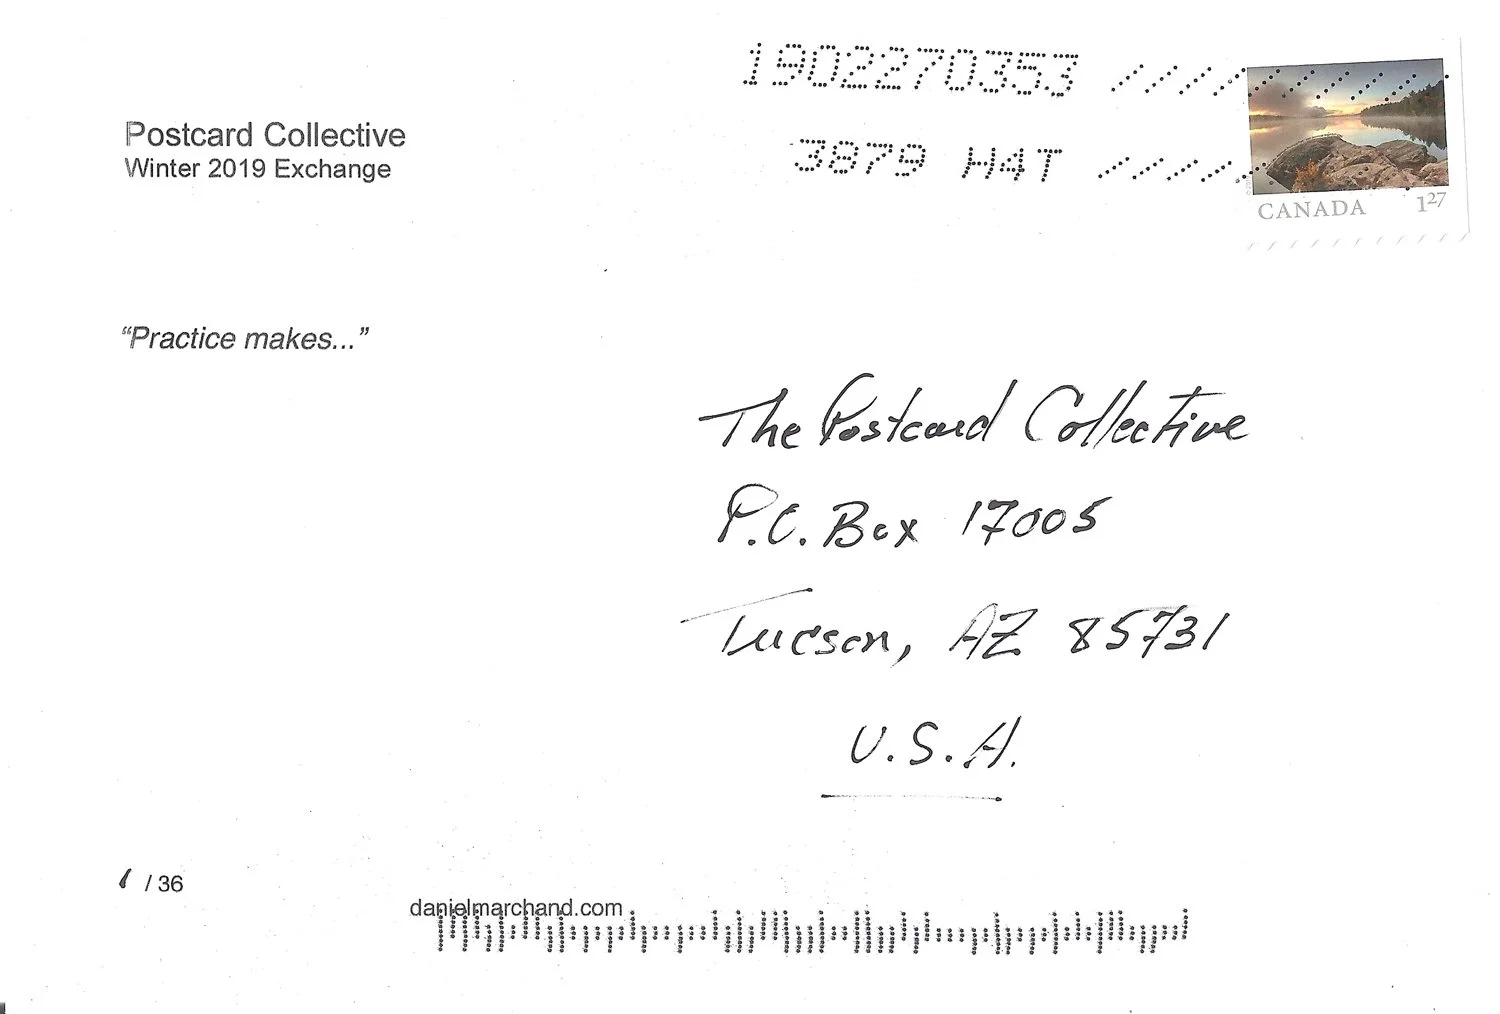 1902270353
3879 H4T
CANADA 127
Postcard Collective
Winter 2019 Exchange
"Practice makes..."
The Postcard Collective
P.O. Box 17005
Tucson, AZ 85731
U.S.A.
1 / 36
danielmarchand.com